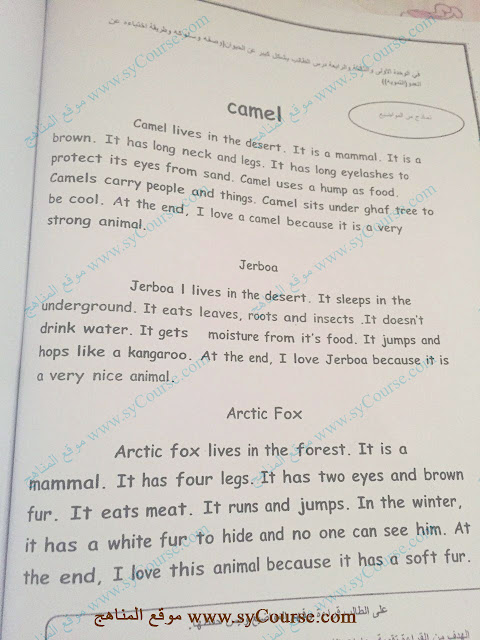 في الوحدة الأولى والثالثة والرابعة درس الطالب بشكل كبير عن الحيوان(وصفه وسلوكه وطريقة اختباءه عن
العدو(التمويه))
نماذج من المواضيع
camel
Camel lives in the desert. It is a mammal. It is a
brown. It has long neck and legs. It has long eyelashes to
protect its eyes from sand. Camel uses a hump as food.
Camels carry people and things. Camel sits under ghaf tree to
be cool. At the end, I love a camel because it is a very
strong animal.
Jerboa
Jerboa l lives in the desert. It sleeps in the
underground. It eats leaves, roots and insects .It doesn't
drink water. It gets moisture from it's food. It jumps and
hops like a kangaroo. At the end, I love Jerboa because it is
a very nice animal.
Arctic Fox
Arctic fox lives in the forest. It is a
mammal. It has four legs. It has two eyes and brown
fur. It eats meat. It runs and jumps. In the winter,
it has a white fur to hide and no one can see him. At
the end, I love this animal because it has a soft fur.
على الطالب
موقع المناهج www.syCourse.com